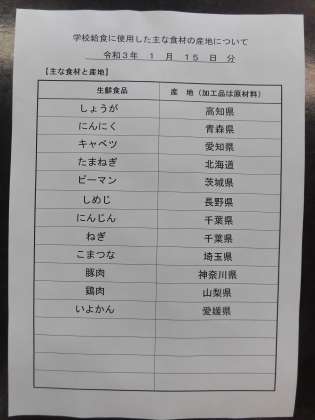 学校給食に使用した主な食材の産地について
令和３年 １ 月 １５ 日 分
【主な食材と産地】
生鮮食品 産 地（加工品は原材料）
しょうが 高知県
にんにく 青森県
キャベツ 愛知県
たまねぎ 北海道
ピーマン 茨城県
しめじ 長野県
にんじん 千葉県
ねぎ 千葉県
こまつな 埼玉県
豚肉 神奈川県
鶏肉 山梨県
いよかん 愛媛県